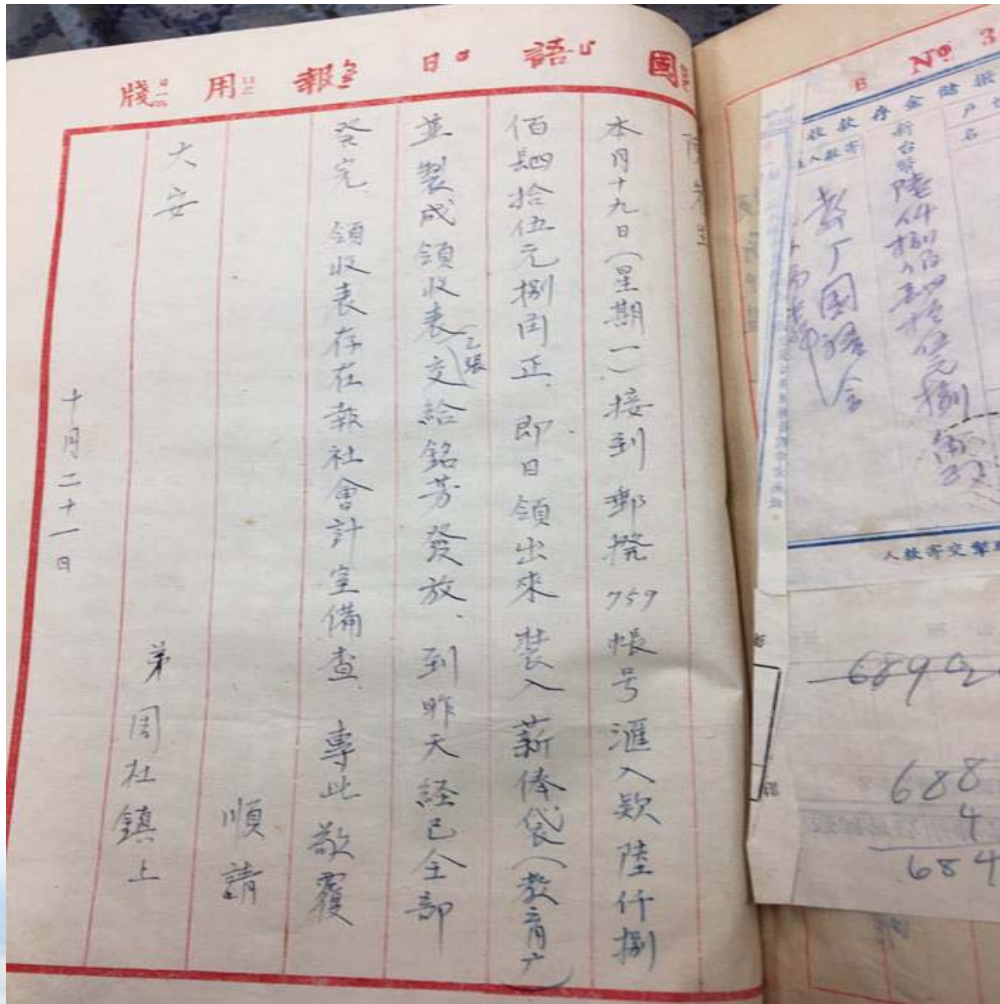 國語日報用牋
本月十九日(星期一)接到郵撥759帳号滙入欵陸仟捌
佰肆拾伍元捌角正、即日領出來裝入薪俸袋(教育广)
並製成領收表乙張交給銘芳發放、到昨天経已全部
發完、領收表存在報社會計室備查 專此 敬覆
順請
大安
弟 周杜鎮 上
十月二十一日
No 3
B
撥儲金存款收
新台幣陸仟捌佰肆拾伍元捌
教丁國語會
人款寄交掣
6892
688
4
684